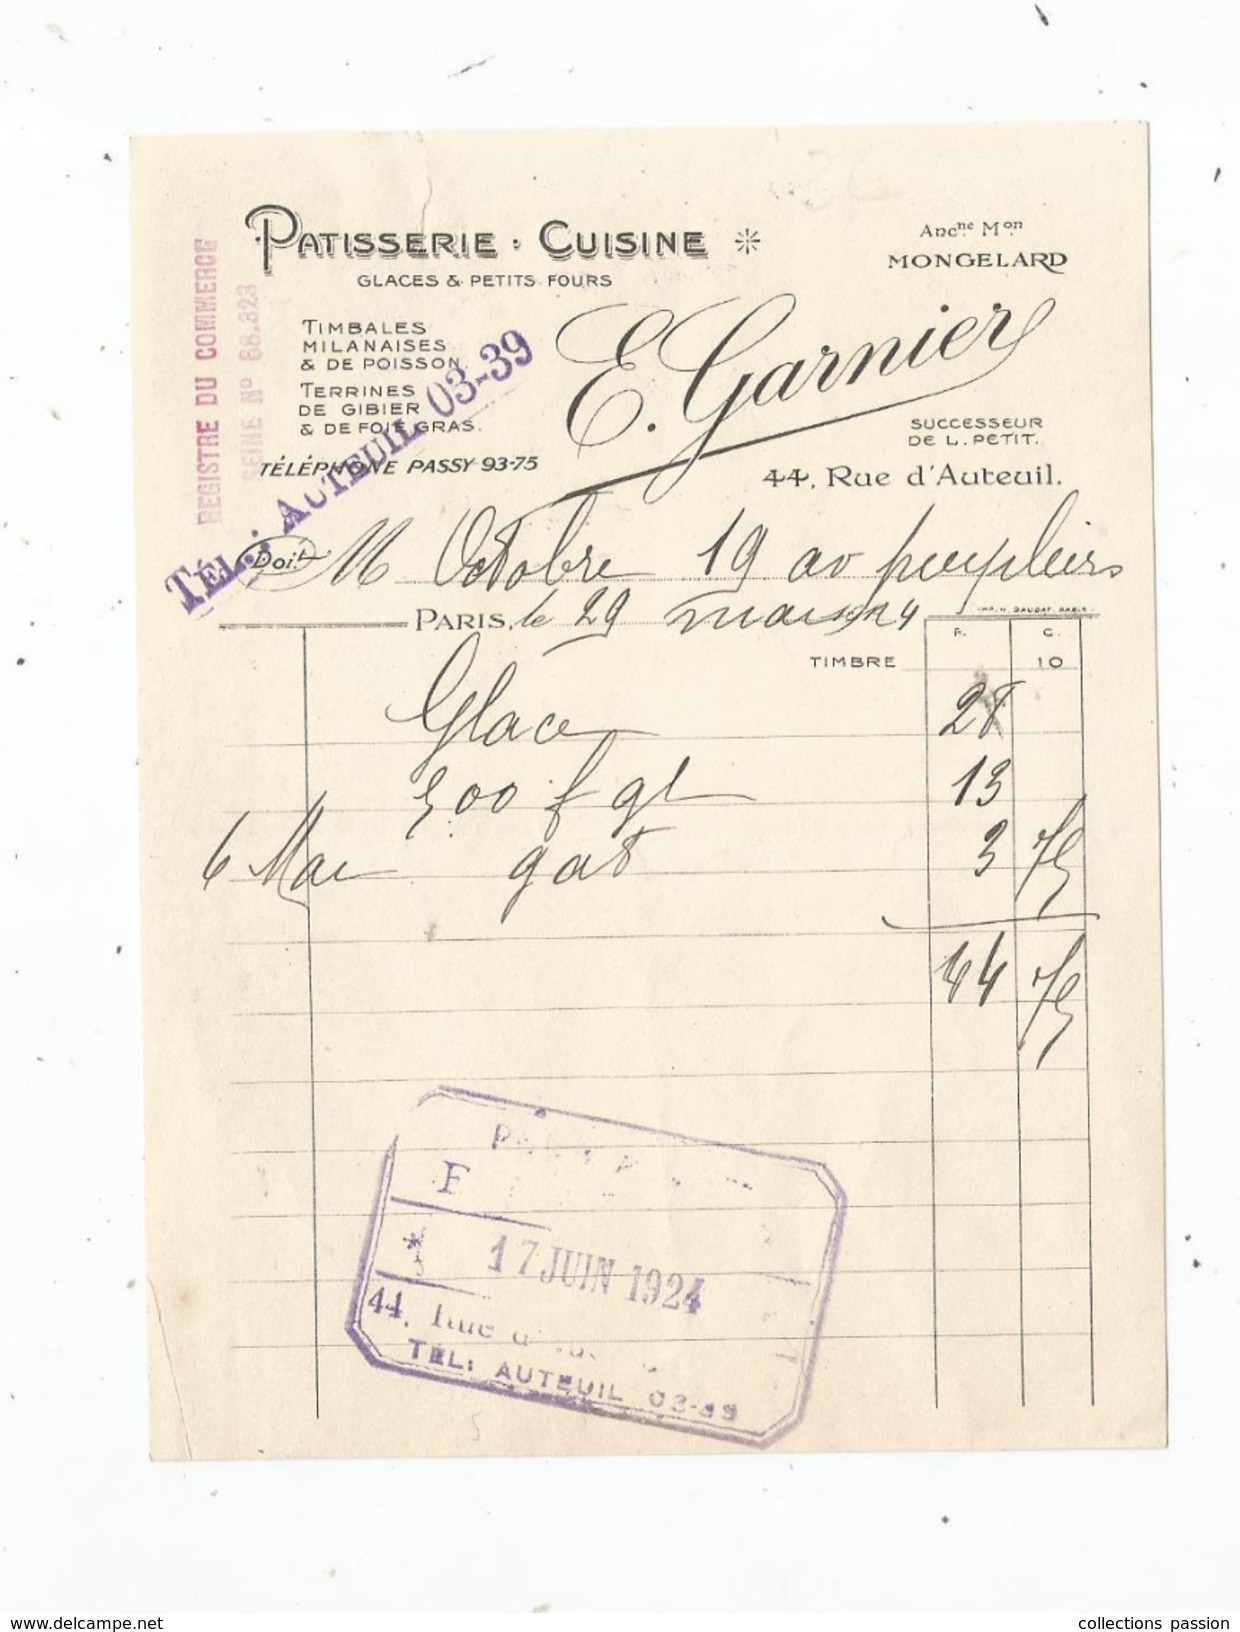 PATISSERIE · CUISINE
GLACES & PETITS FOURS
Ancne Mon
MONGELARD
TIMBALES
MILANAISES
& DE POISSON
TERRINES
DE GIBIER
& DE FOIE GRAS.
TÉLÉPHONE PASSY 93-75
E. Garnier
SUCCESSEUR
DE L. PETIT.
44, Rue d'Auteuil.
REGISTRE DU COMMERCE
SEINE N° 68.823
TÉL.: AUTEUIL 03-39
Doit M Octobre 19 av peupliers
IMP. H. DAUDAT. PARIS.
PARIS, le 29 mars 1924
F. C.
TIMBRE 10
Glace 28
500 f gl 13
6 Mai gat 3 75
44 75
17 JUIN 1924
44, Rue d'
TEL: AUTEUIL 03-39
delcampe.net
collections passion